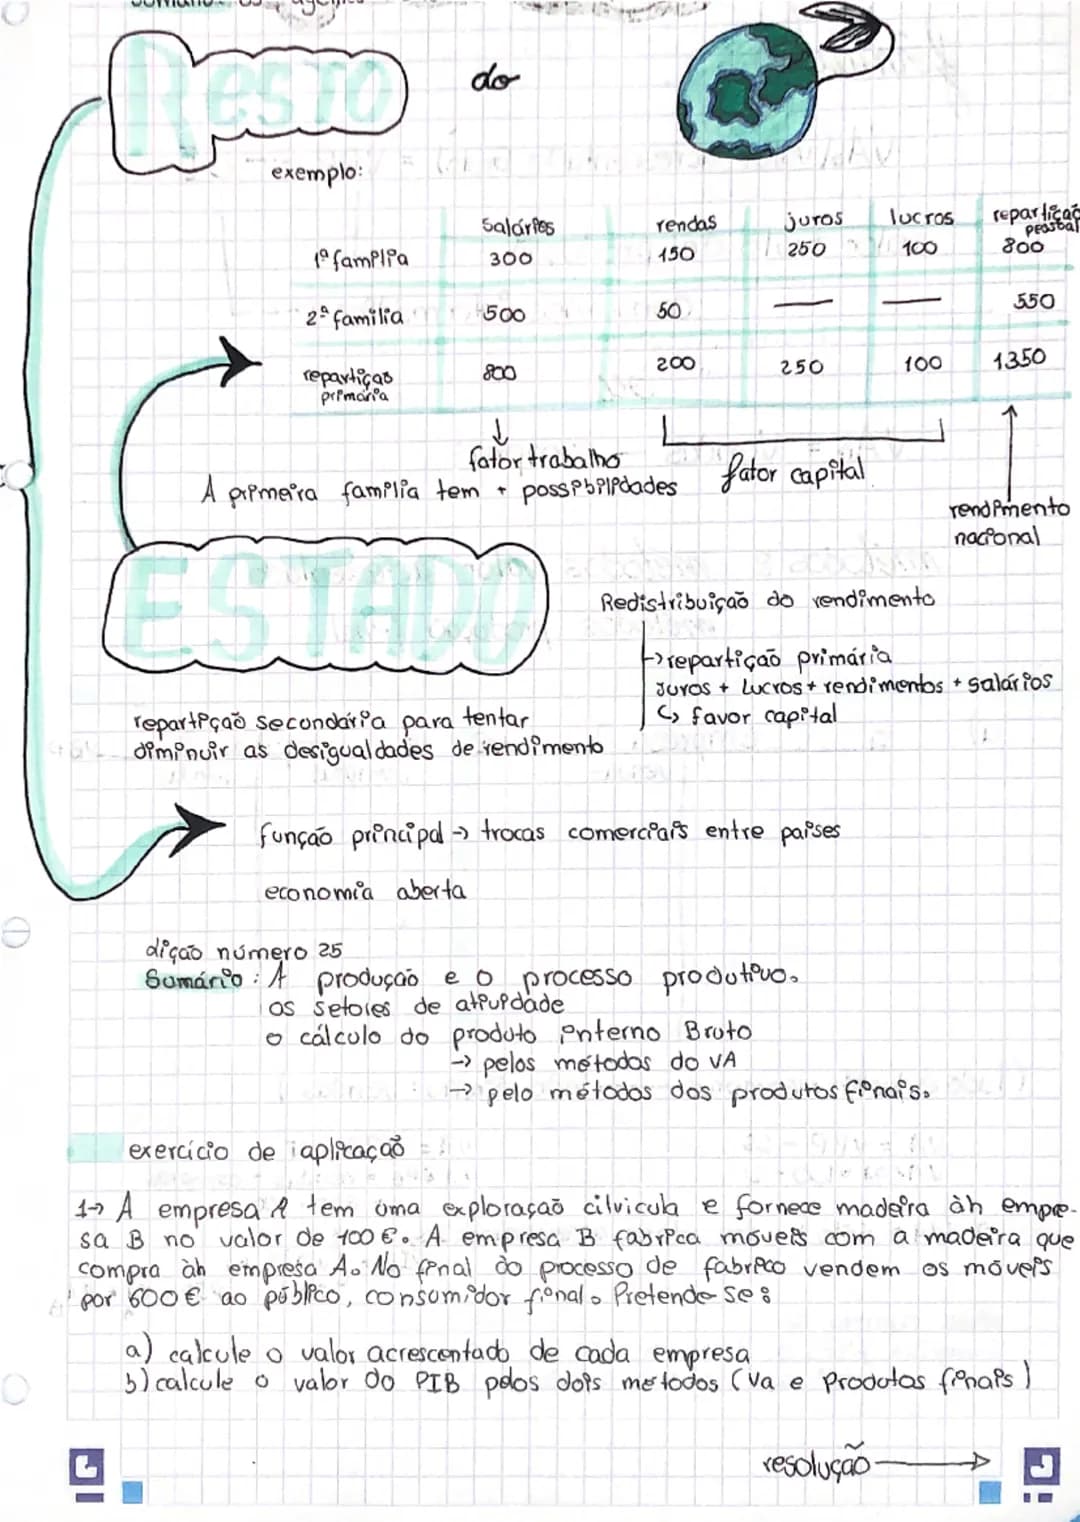 Resto do
exemplo:
Salários rendas juros lucros repartição pessoal
1ª família 300 150 250 100 800
2ª família 500 50 — — 550
repartição primária 800 200 250 100 1350
↓
fator trabalho fator capital
A primeira família tem + possibilidades
rendimento
nacional
ESTADO
Redistribuição do rendimento
→ repartição primária
Juros + Lucros + rendimentos + salários
↳ favor capital
repartição secondária para tentar
diminuir as desigualdades de rendimento
função principal → trocas comerciais entre países
economia aberta
dição número 25
Sumário: A produção e o processo produtivo.
os setores de atividade
o cálculo do produto interno Bruto
→ pelos métodos do VA
→ pelo métodos dos produtos finais.
exercício de aplicação
1→ A empresa A tem uma exploração cilvicula e fornece madeira àh empre-
sa B no valor de 100 €. A empresa B fabrica móveis com a madeira que
compra àh empresa A. No final do processo de fabrico vendem os móveis
por 600 € ao público, consumidor final. Pretende-se:
a) calcule o valor acrescentado de cada empresa
b) calcule o valor do PIB pelos dois metodos (Va e Produtos finais)
resolução →